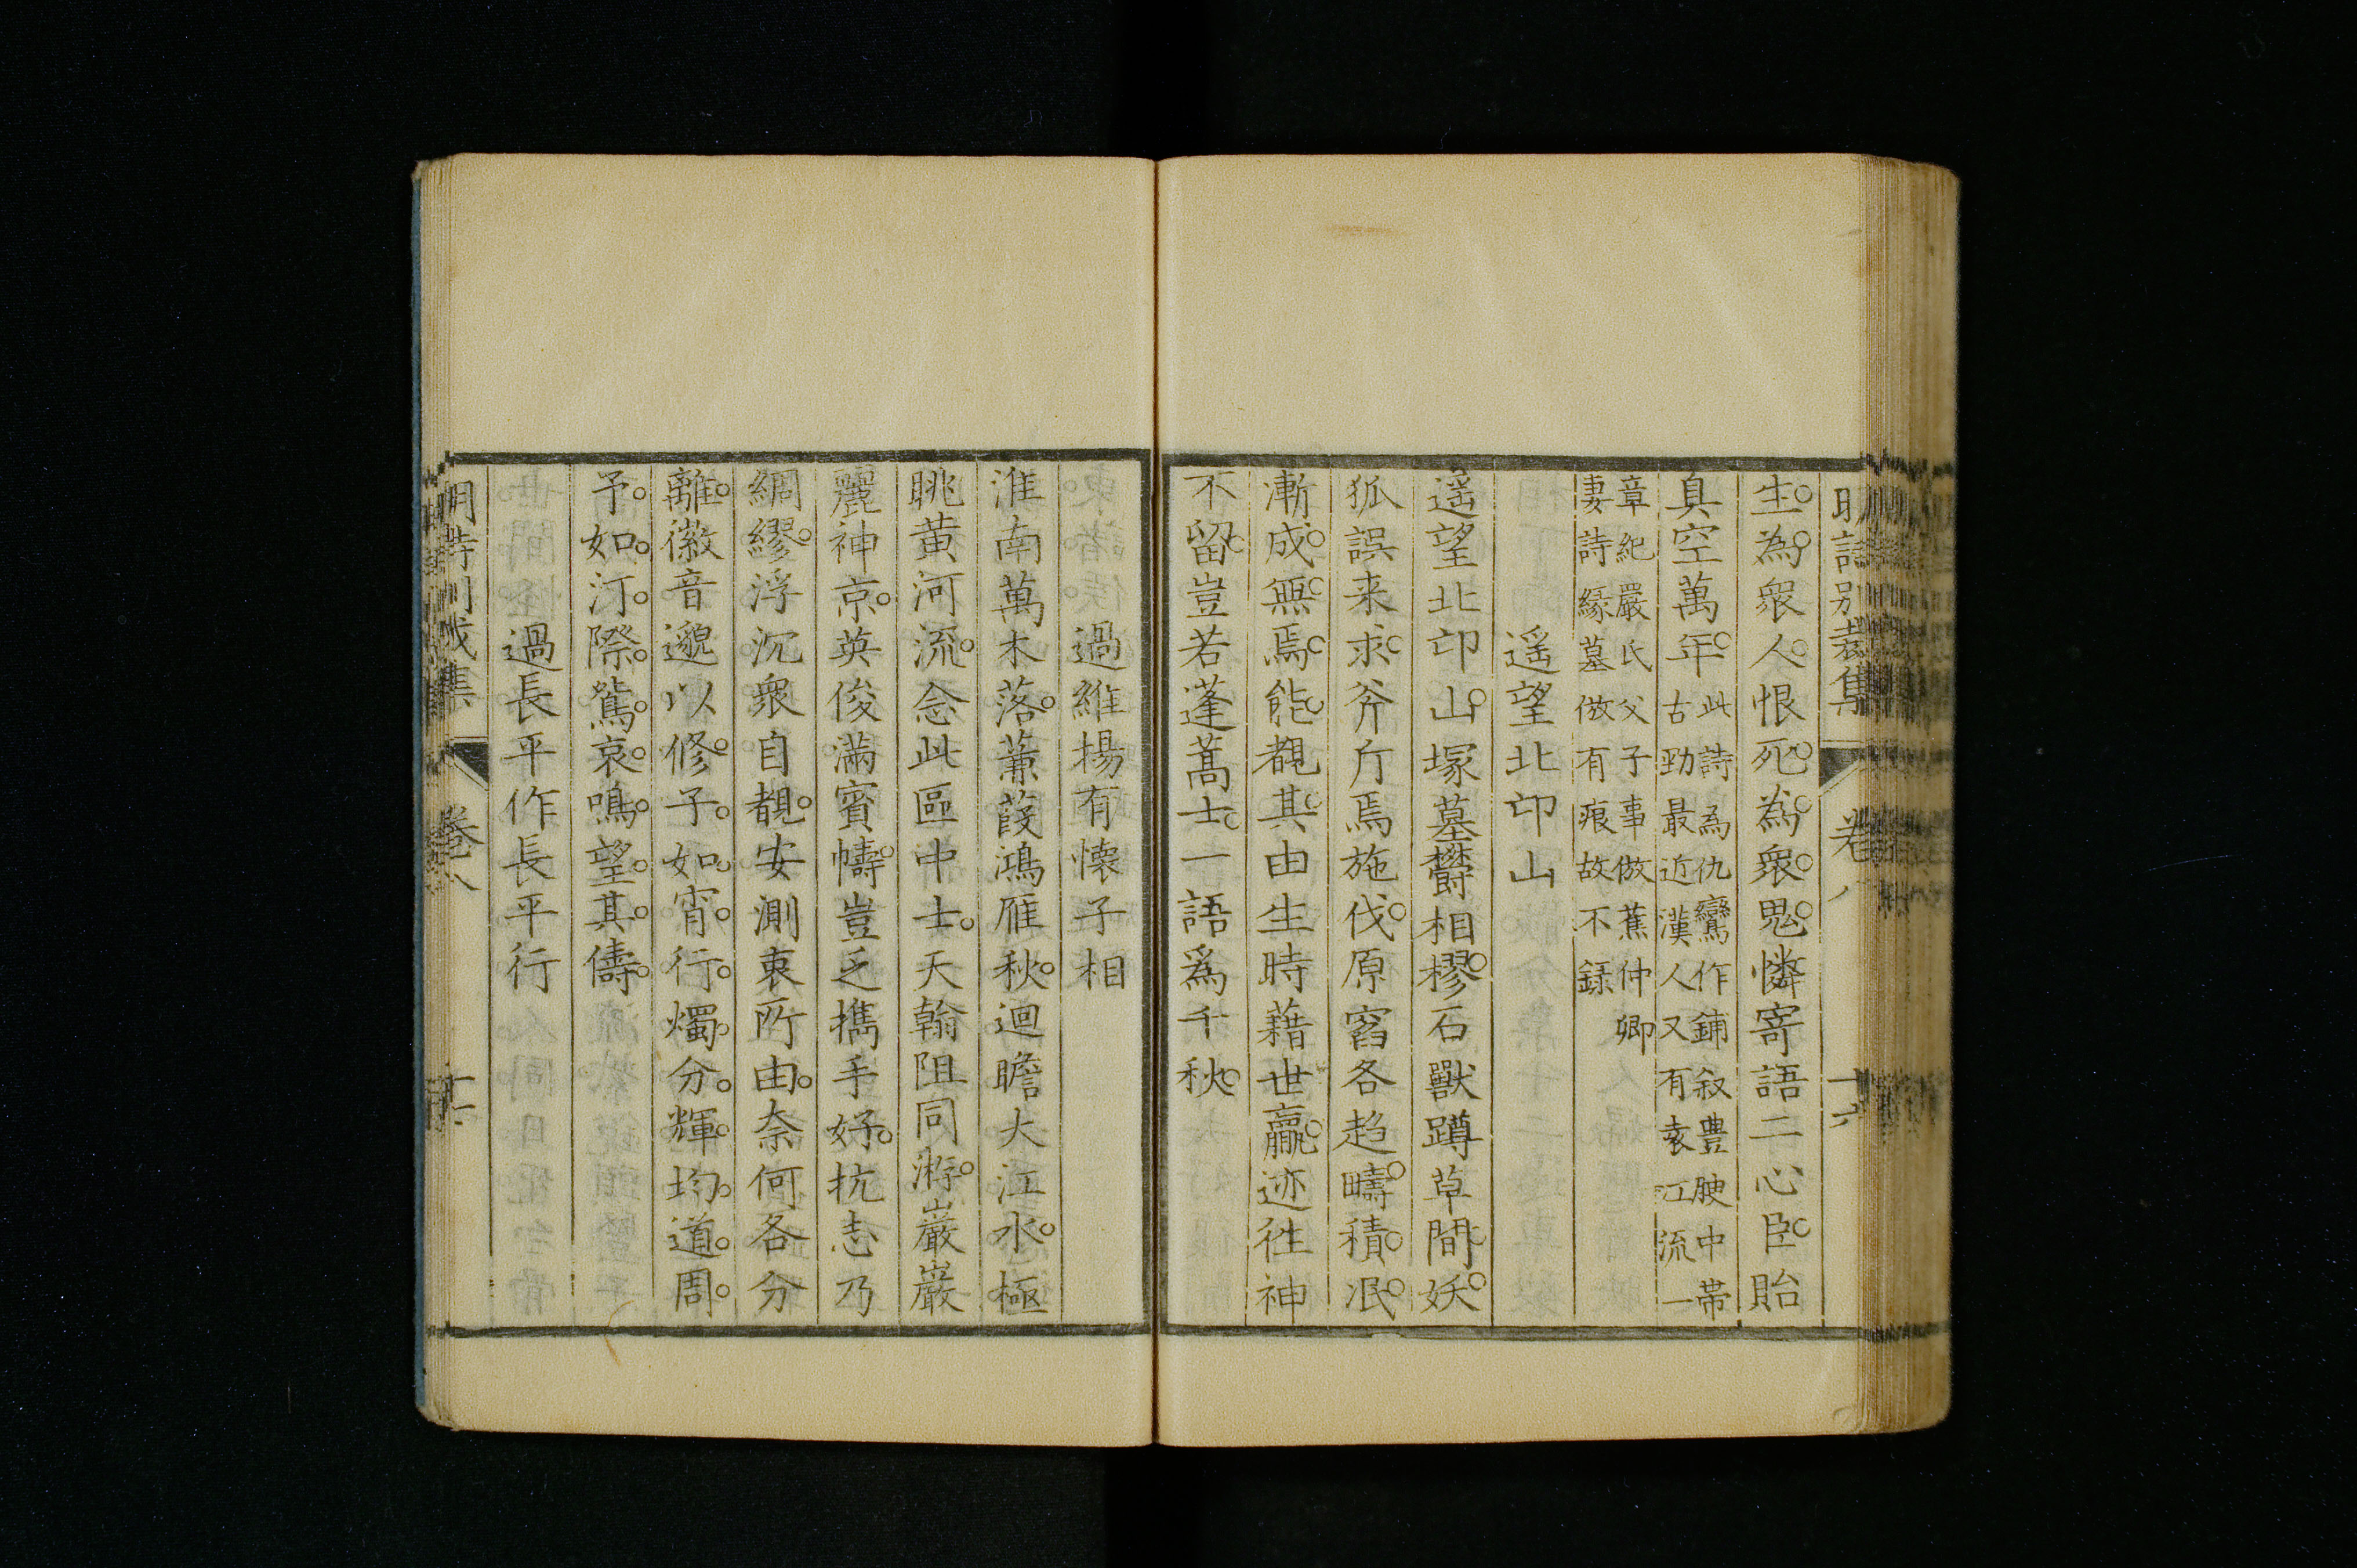 明詩別裁集 卷八 十六
生為衆人恨死為衆鬼憐寄語二心臣貽
真空萬年此詩為仇鸞作鋪叙豊腴中帶
古勁最近漢人又有袁江流一
章紀嚴氏父子事倣蕉仲卿
妻詩緣墓倣有痕故不錄
遥望北卬山
遥望北卬山塚墓欝相樛石獸蹲草間妖
狐誤来求斧斤焉施伐原窞各趋疇積冺
漸成無焉能覩其由生時藉世贏迹徃神
不留豈若蓬蒿士一語爲千秋
過維揚有懐子相
淮南萬木落蒹葭鴻雁秋迴瞻大江水極
眺黄河流念此區中士天翰阻同游巖巖
麗神京英俊滿賓幬豈乏攜手好抗志乃
綢繆浮沉衆自覩安測衷所由奈何各分
離徽音邈以修子如宵行燭分輝均道周
予如汀際鶩哀鳴望其儔
過長平作長平行
明詩別裁集 卷八